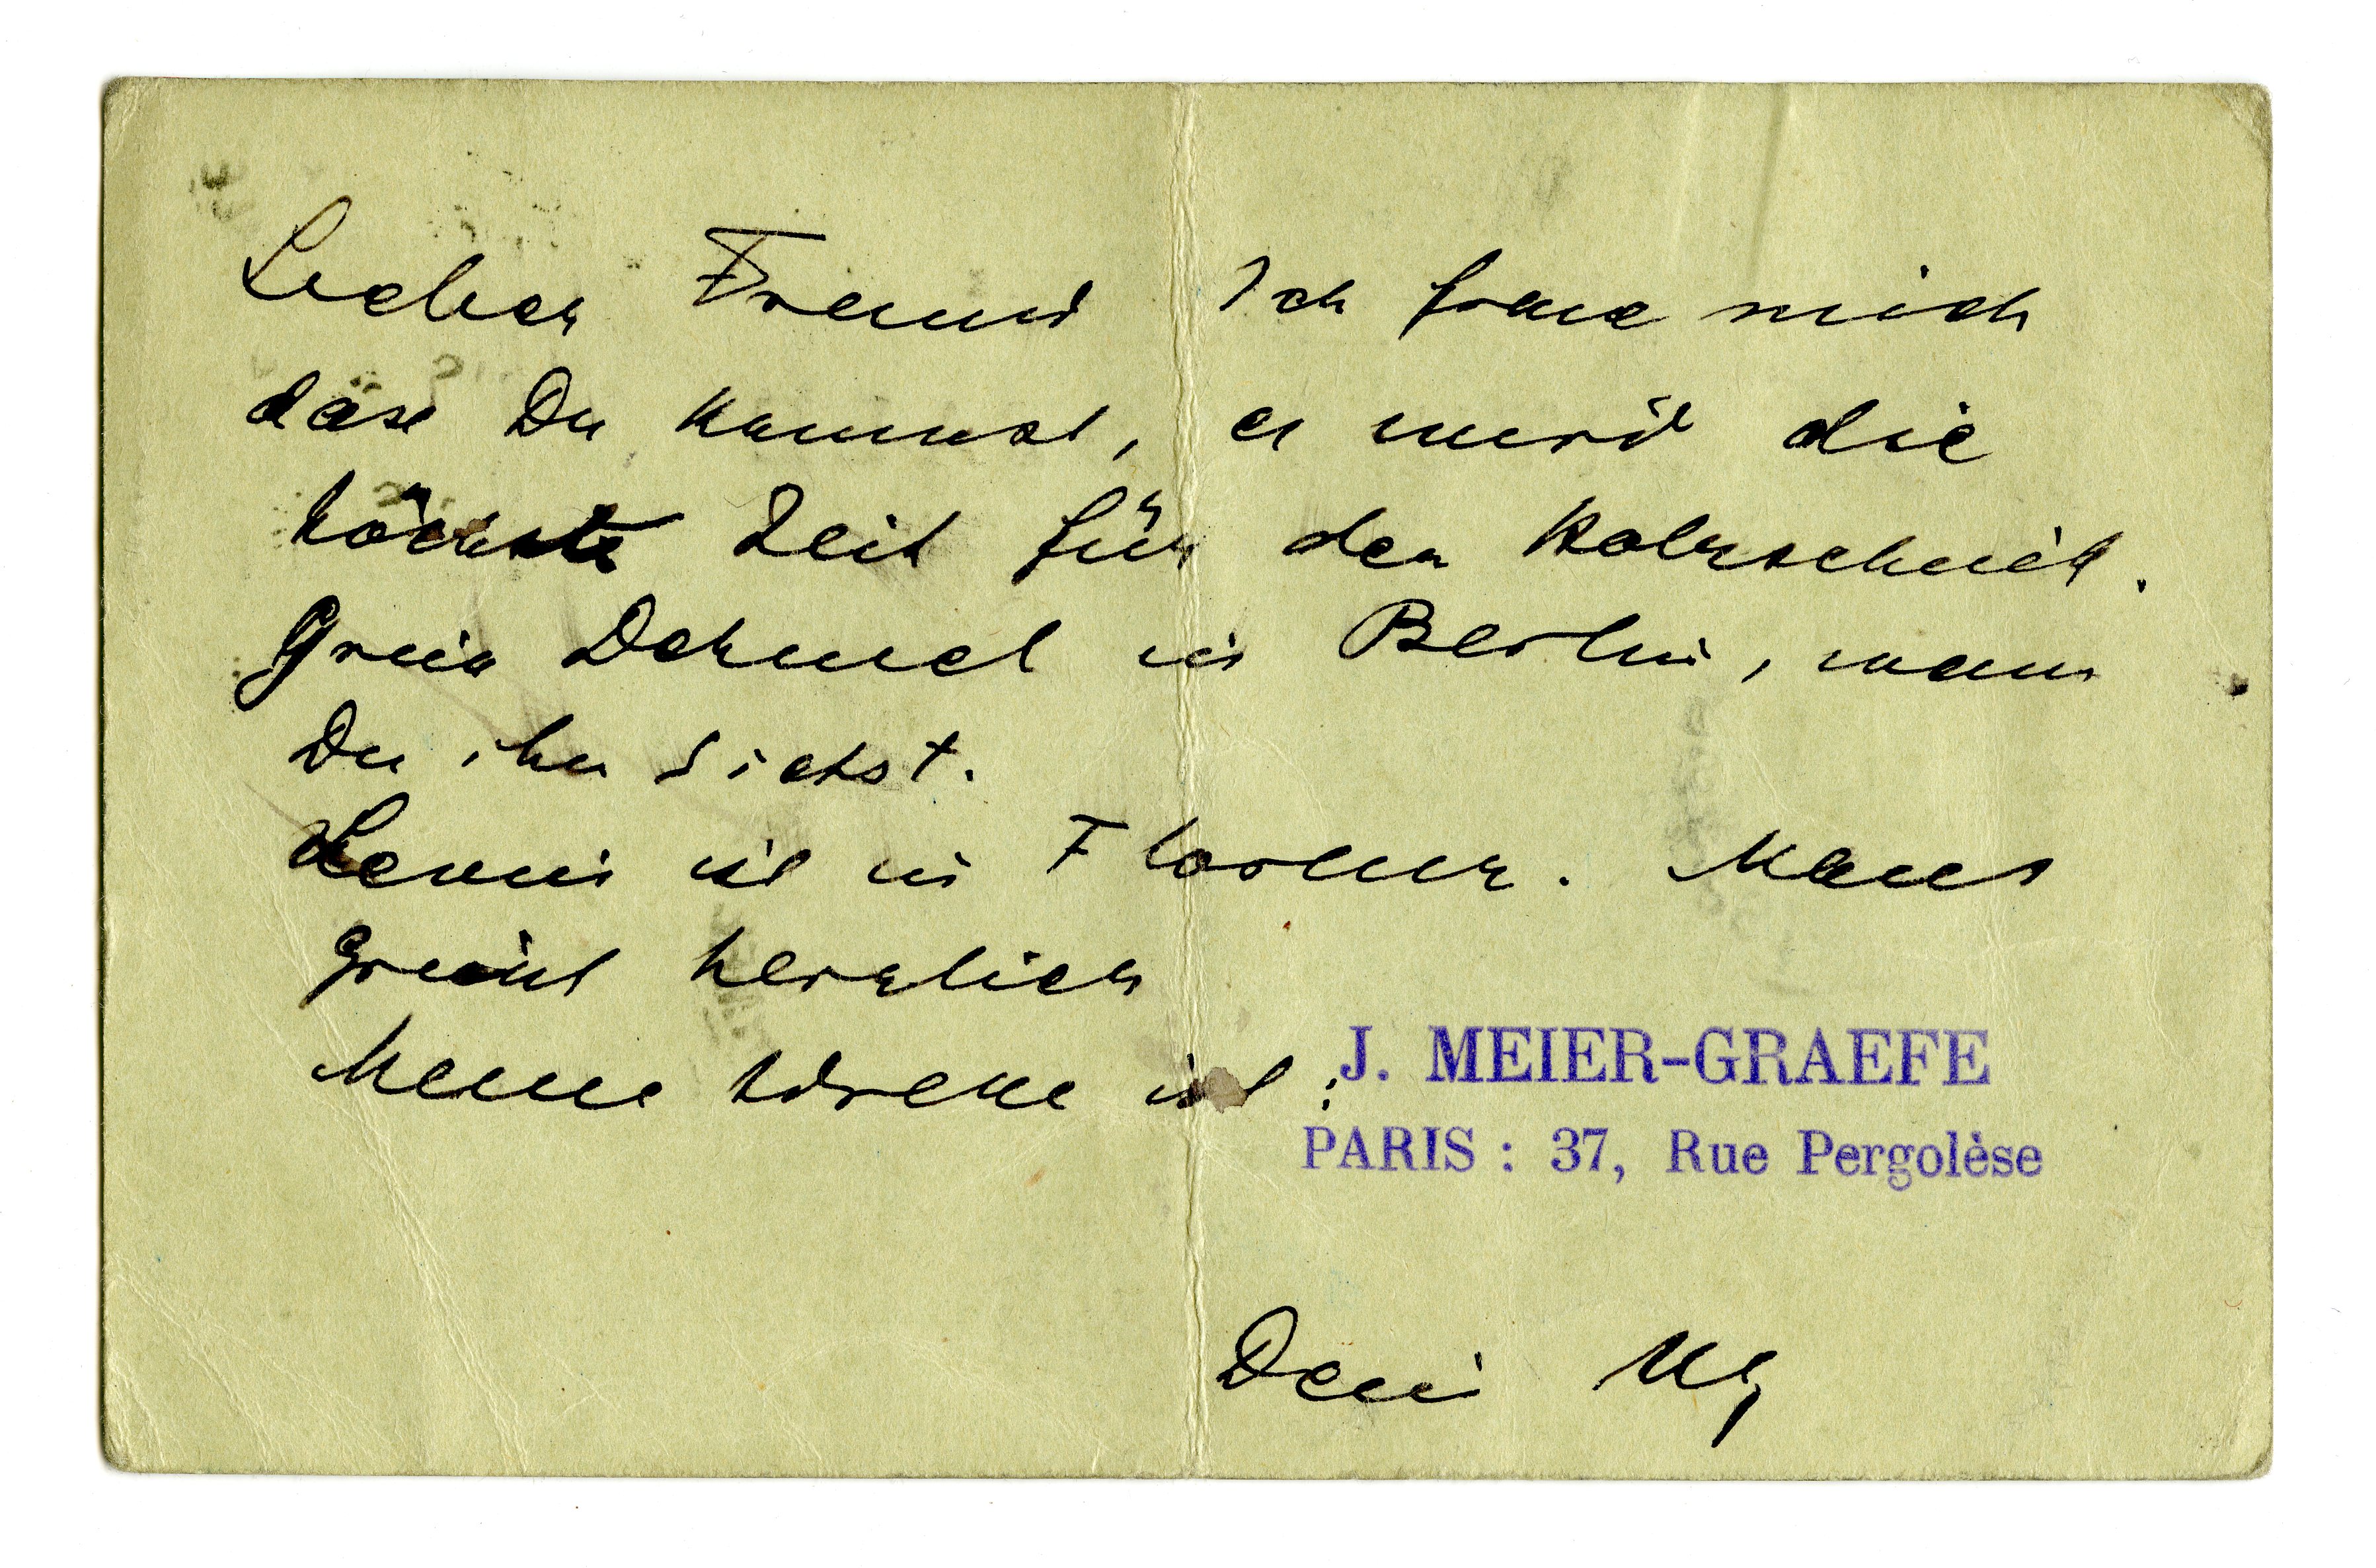 Lieber Freund Ich freue mich
dass Du kommst, es wird die
höchste Zeit für den Holzschnitt.
Grüss Dehmel in Berlin, wenn
Du ihn siehst.
ist in Florenz.
grüsst herzlich
Meine Adresse ist : J. MEIER-GRAEFE
PARIS : 37, Rue Pergolèse
Dein MG